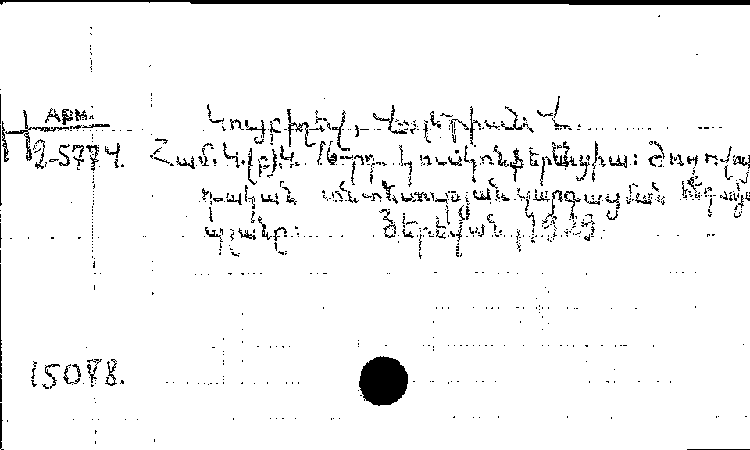 Арм.
2-5774.
Կույբիշեվ, Վալերիան Վ.
Համ. Կ(բ)Կ 16-րդ կուսկոնֆերենցիա: Ժողովր
դական տնտեսության կարգացման հնգամյա
պլանը: Յերեվան, 1929.
15088.